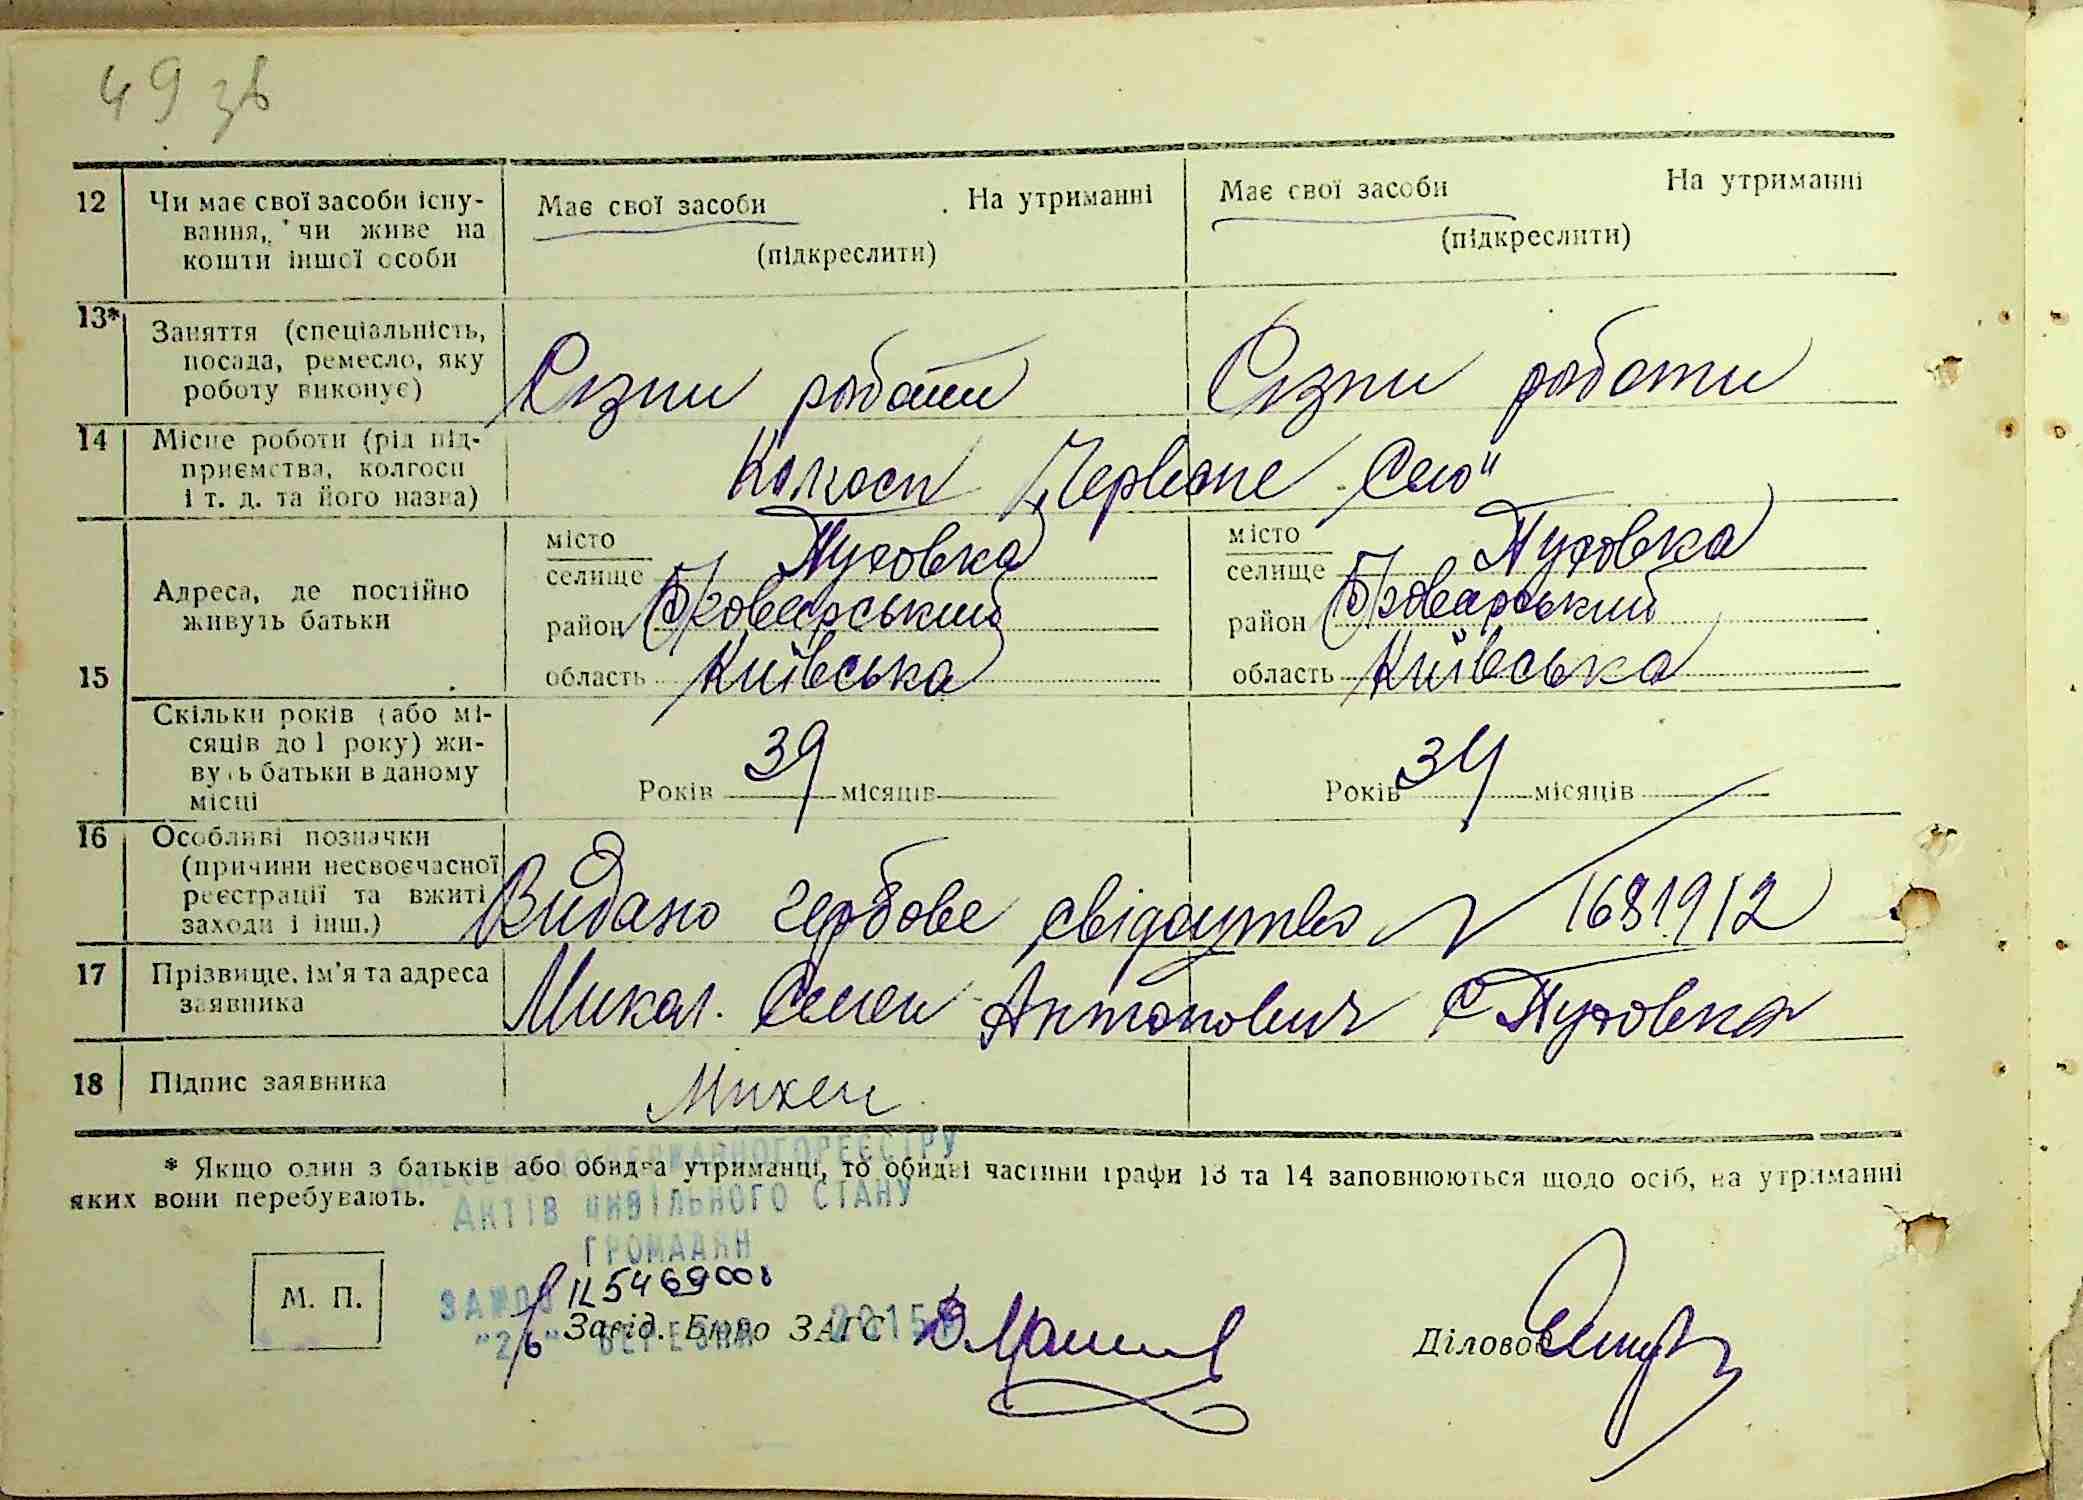 49 зв
12 Чи має свої засоби існу- Має свої засоби На утриманні Має свої засоби На утриманні
вання, чи живе на (підкреслити) (підкреслити)
кошти іншої особи
13* Заняття (спеціальність,
посада, ремесло, яку
роботу виконує) Різни роботи Різни роботи
14 Місце роботи (рід під-
приємства, колгосп Колхосп „Червоне Село"
і т. д. та його назва)
місто місто
селище Пуховка селище Пуховка
Адреса, де постійно
живуть батьки район Броварський район Броварський
15 область Київська область Київська
Скільки років (або мі-
сяців до 1 року) жи-
вуть батьки в даному Років 39 місяців Років 34 місяців
місці
16 Особливі позначки
(причини несвоєчасної
реєстрації та вжиті Видано гербове свідоцтво № 1681912
заходи і інш.)
17 Прізвище, ім'я та адреса
заявника Микал. Семен Антонович с Пуховка
18 Підпис заявника Михен
ДЕРЖАВНОГО РЕЄСТРУ
* Якщо один з батьків або обидва утриманці, то обидві частини графи 13 та 14 заповнюються щодо осіб, на утриманні
яких вони перебувають.
АКТІВ ЦИВІЛЬНОГО СТАНУ
ГРОМАДЯН
М. П.
Завід. Бюро ЗАГС Діловод
"26" БЕРЕЗНЯ 2015